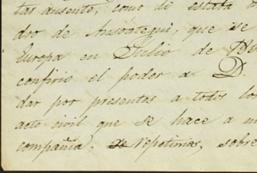 tar ausente, como de estata
dor de Ansóategui, que se
Europa en Julio de
confirio el poder a D.
dar por presentes a todos los
acto civil que se hace a
compañia; repetimos, sobre